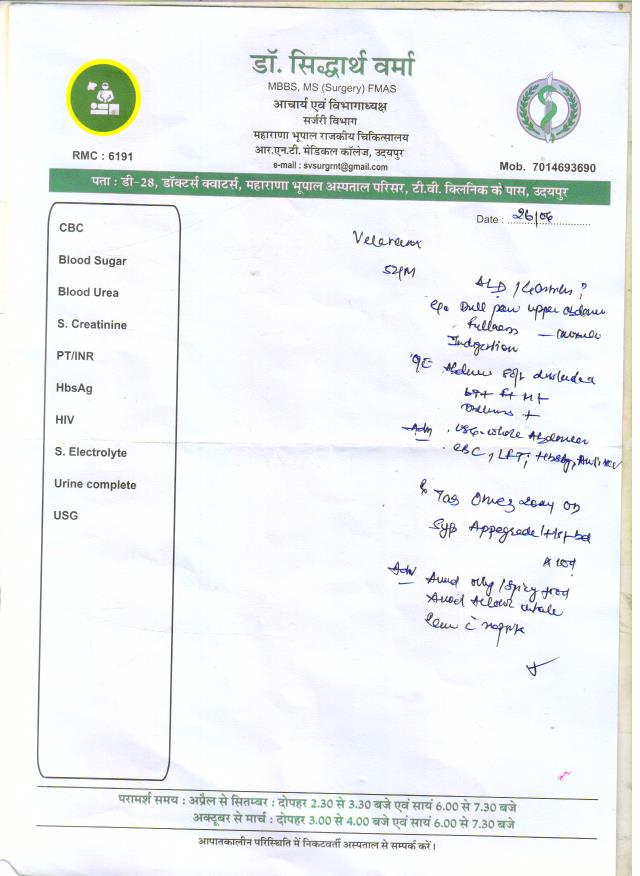 डॉ. सिद्धार्थ वर्मा
MBBS, MS (Surgery) FMAS
आचार्य एवं विभागाध्यक्ष
सर्जरी विभाग
महाराणा भूपाल राजकीय चिकित्सालय
आर.एन.टी. मेडिकल कॉलेज, उदयपुर
e-mail : svsurgrnt@gmail.com
RMC : 6191
Mob. 7014693690
पता : डी-28, डॉक्टर्स क्वाटर्स, महाराणा भूपाल अस्पताल परिसर, टी.वी. क्लिनिक के पास, उदयपुर
Date : 26/06
CBC
Blood Sugar
Blood Urea
S. Creatinine
PT/INR
HbsAg
HIV
S. Electrolyte
Urine complete
USG
ALD /
c/o Dull pain upper abdomen
fullness
Indigestion
O/E Abdomen distended
Adv USG whole Abdomen
CBC, LFT, HbsAg, Anti HCV
Tab Omez 20mg OD
Syp
Adv Avoid oily/spicy food
Avoid intake
परामर्श समय : अप्रैल से सितम्बर : दोपहर 2.30 से 3.30 बजे एवं सायं 6.00 से 7.30 बजे
अक्टूबर से मार्च : दोपहर 3.00 से 4.00 बजे एवं सायं 6.00 से 7.30 बजे
आपातकालीन परिस्थिति में निकटवर्ती अस्पताल से सम्पर्क करें।